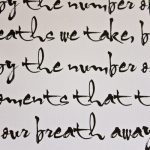 by the number of
eaths we take, b
by the number o
oments that t
our breath away